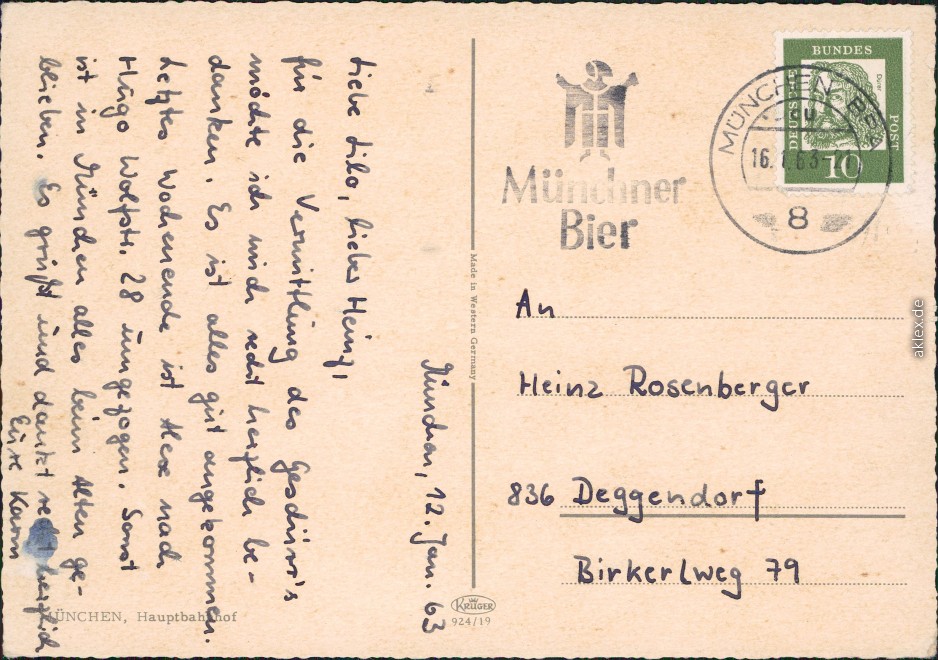 München, 12. Jan. 63
Liebe Lilo, lieber Heinz,
für die Vermittlung des Geschirrs
möchte ich mich recht herzlich be-
danken. Es ist alles gut angekommen.
Letztes Wochenende ist Alex nach
Hugo Wolfstr. 28 umgezogen. Sonst
ist in München alles beim Alten ge-
blieben. Es grüßt und dankt recht herzlich
Eure Karin
MÜNCHEN, Hauptbahnhof
Made in Western Germany
KRÜGER
924/19
Münchner
Bier
MÜNCHEN
16.1.63
8
DEUTSCHE
BUNDES
POST
Dürer
10
An
Heinz Rosenberger
836 Deggendorf
Birkerlweg 79
aklex.de